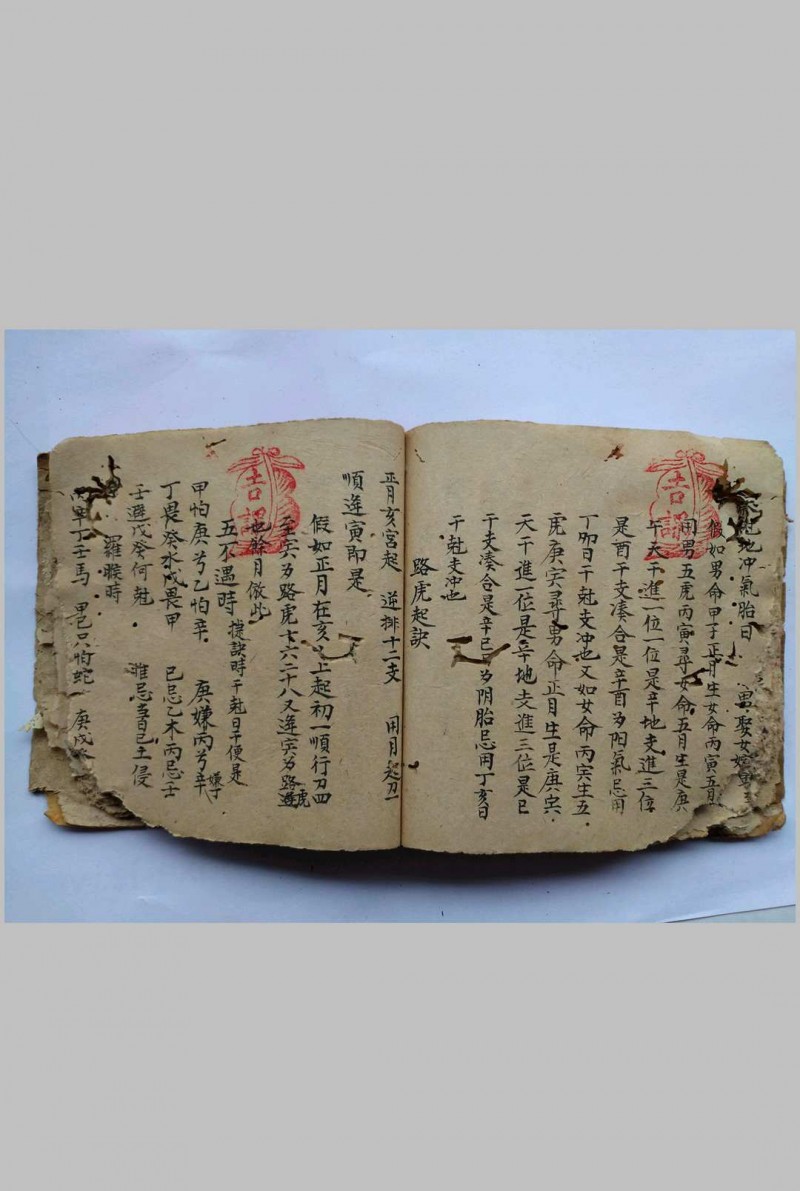 地冲氣胎日 男娶女嫁
假如男命甲子正月生女命丙寅五月
用男五虎丙寅尋女命五月生是庚
午天干進一位一位是辛地支進三位
是酉干支凑合是辛酉为阳氣忌用
丁卯日干尅支冲也又如女命丙寅生五
虎庚寅尋男命正月生是庚寅
天干進一位是辛地支進三位是巳
干支凑合是辛巳为阴胎忌用丁亥日
干尅支冲也
路虎起訣
正月亥宮起 逆排十二支 用月起初一
順逢寅即是
假如正月在亥上起初一順行初四
至寅为路虎十六二十八又逢寅为路虎
也餘月倣此
五不遇時 捷訣時干尅日干便是
甲怕庚兮乙怕辛 庚嫌丙兮辛嫌丁
丁畏癸水戊畏甲 己忌乙木丙忌壬
壬遯戊癸何尅 雅忌己土侵
羅睺時
丁壬馬 甲己只怕蛇 庚戌
吉課
吉課